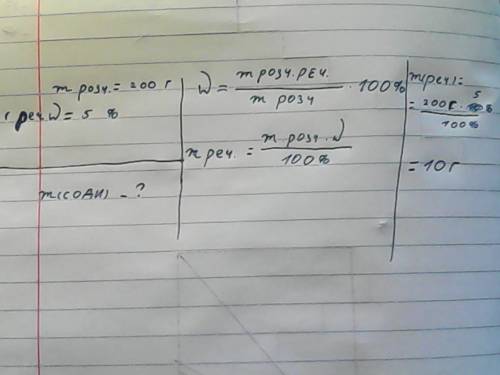 m розч. = 200 г
реч. W = 5 %
m(соди) - ?
W = m розч. реч. / m розч · 100%
m реч. = m розч. W / 100%
m(реч.)=
= 200г · 5% / 100%
= 10г